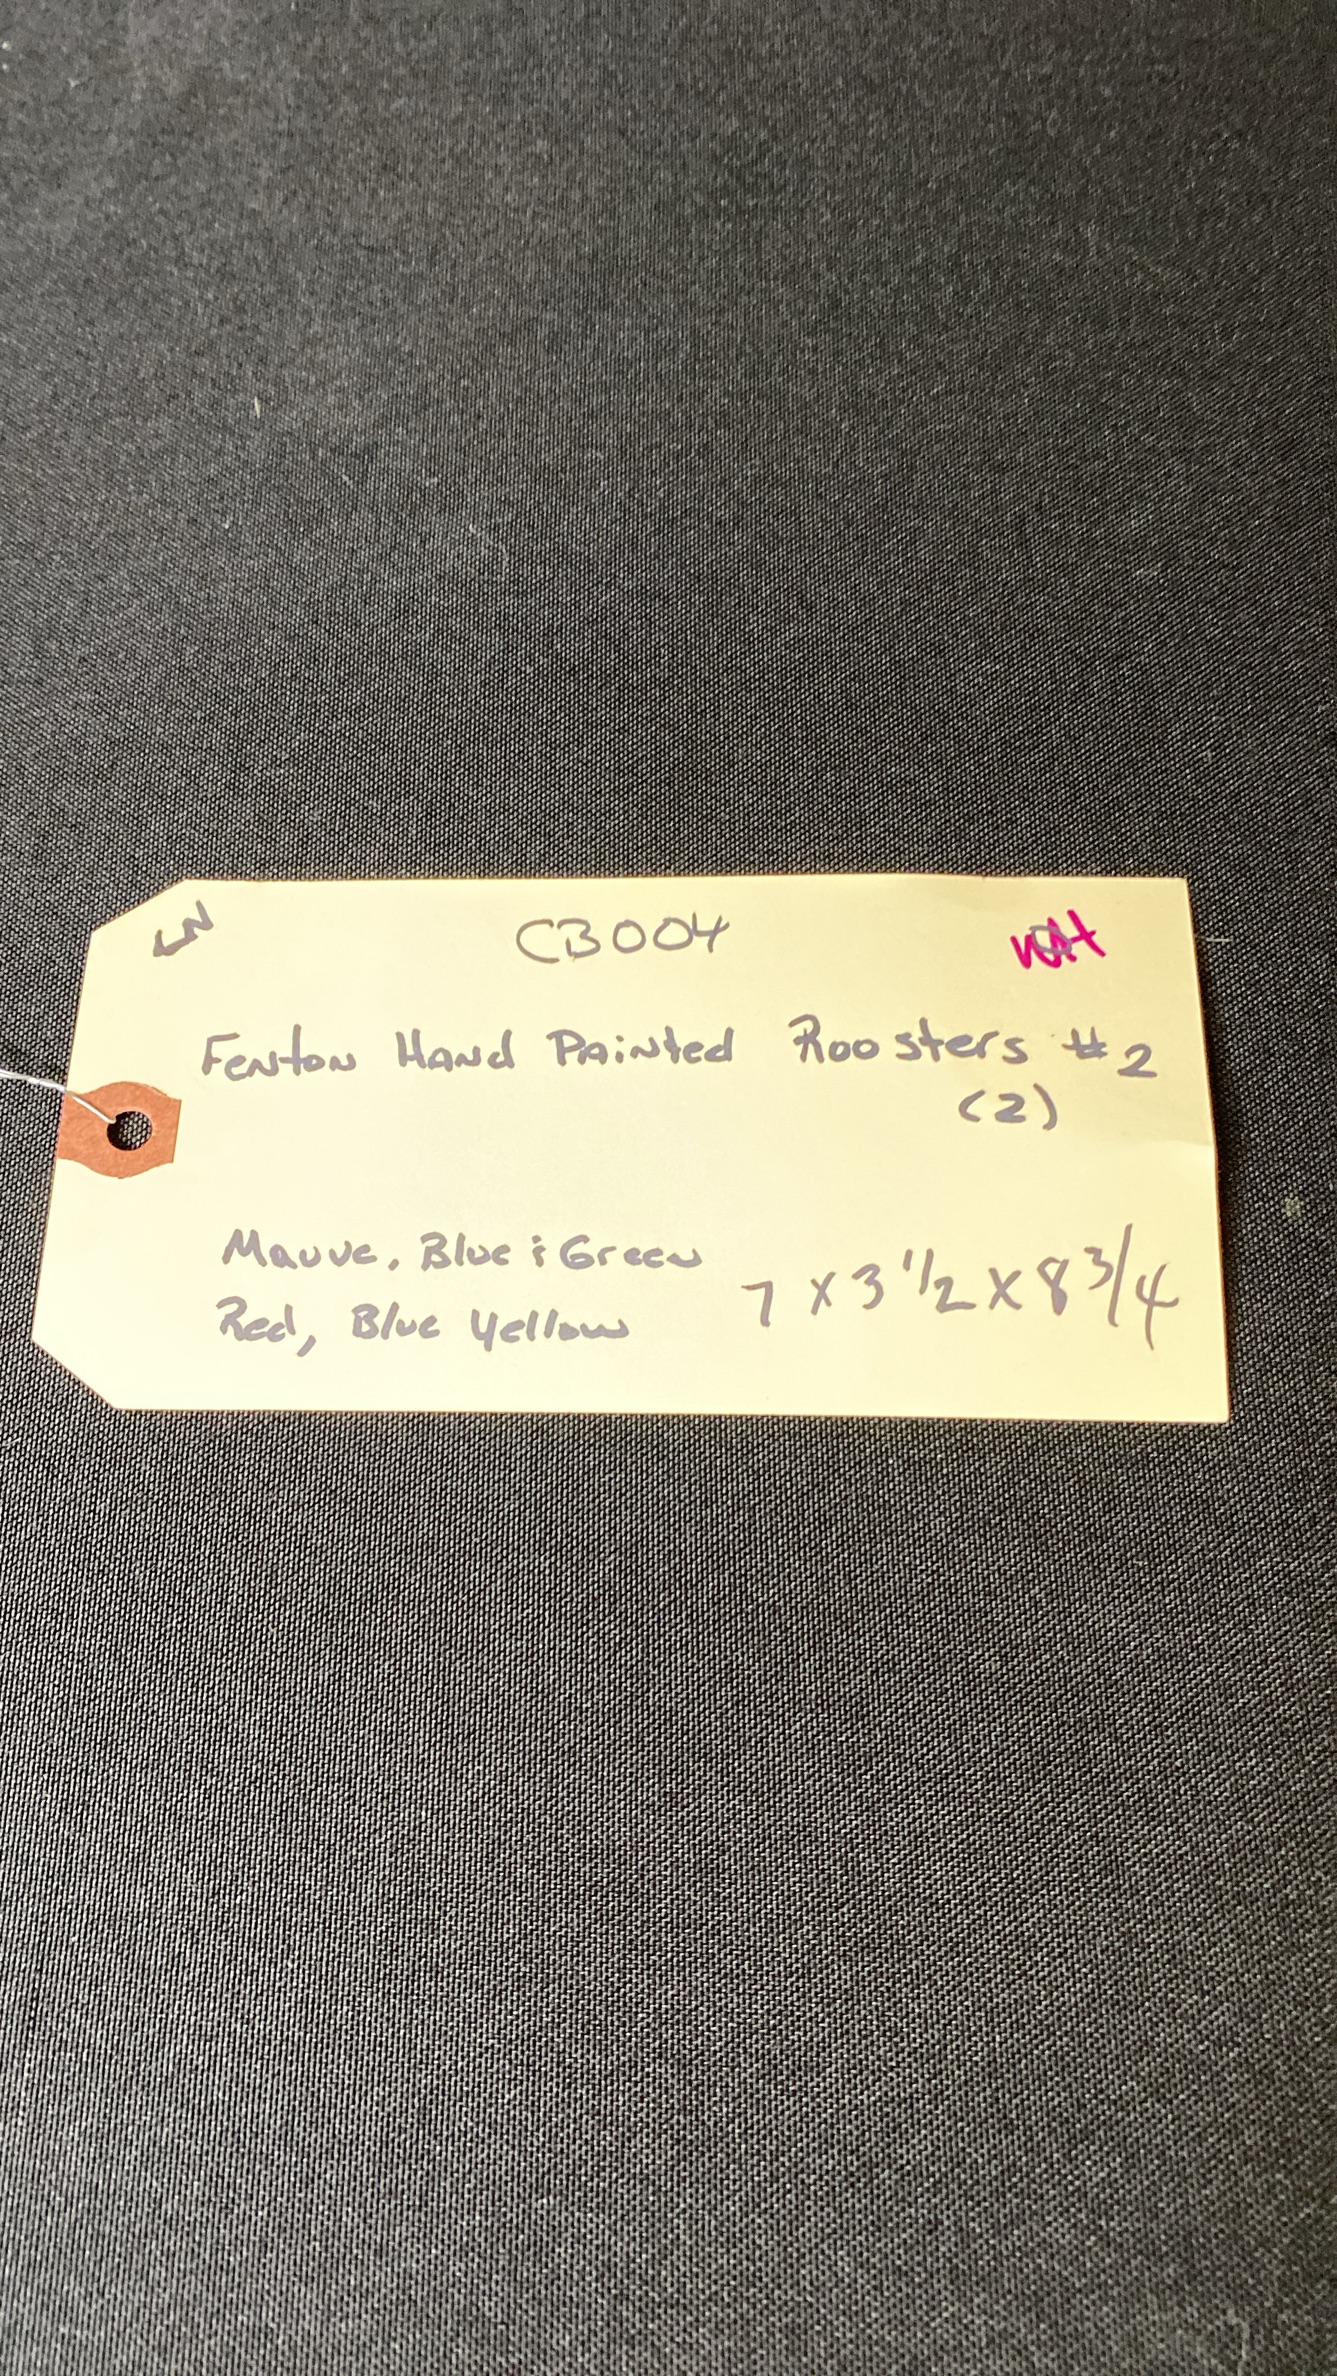 LN
CB004
Fenton Hand Painted Roosters #2
(2)
Mauve, Blue & Green
Red, Blue Yellow
7 x 3 1/2 x 8 3/4